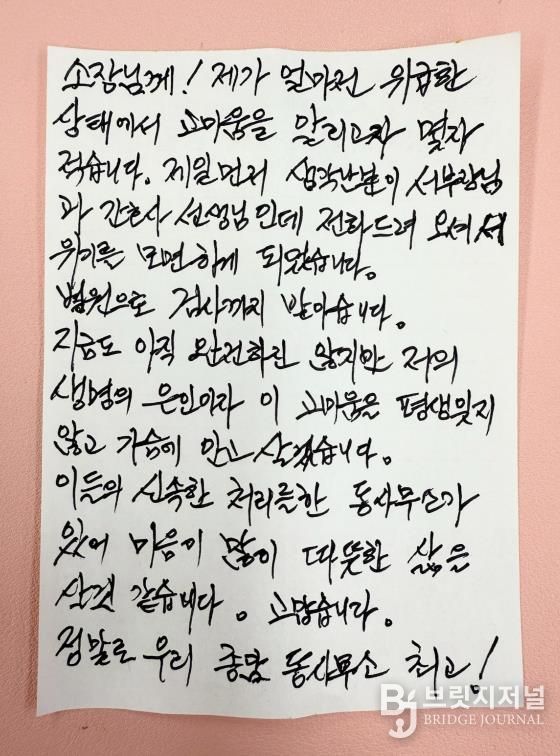 소장님께! 제가 얼마전 위급한
상태에서 고마움을 알리고자 몇자
적습니다. 제일먼저 생각난분이 서부장님
과 간호사 선생님인데 전화드려 오셔서
위기를 모면하게 되었습니다.
병원으로 검사까지 받아습니다.
지금도 아직 완전하진 않지만 저의
생명의 은인이라 이 고마움을 평생잊지
않고 가슴에 안고 살겠습니다.
이들의 신속한 처리를한 동사무소가
있어 마음이 많이 따뜻한 삶을
산것 같습니다. 고맙습니다.
정말로 우리 종암 동사무소 최고!
브릿지저널
BRIDGE JOURNAL